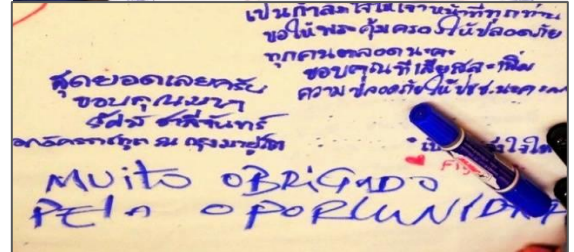 เป็นกำลังใจให้เจ้าหน้าที่ทุกท่าน
ขอให้พระคุ้มครองให้ปลอดภัย
ทุกคนตลอดนะคะ
ขอบคุณที่เสียสละเพื่อ
ความปลอดภัยให้ปชช.นะคะ
สุดยอดเลยครับ
ขอบคุณมากๆ
ณ กรุงมาปูโต
MUITO OBRIGADO
PELA OPORTUNIDADE